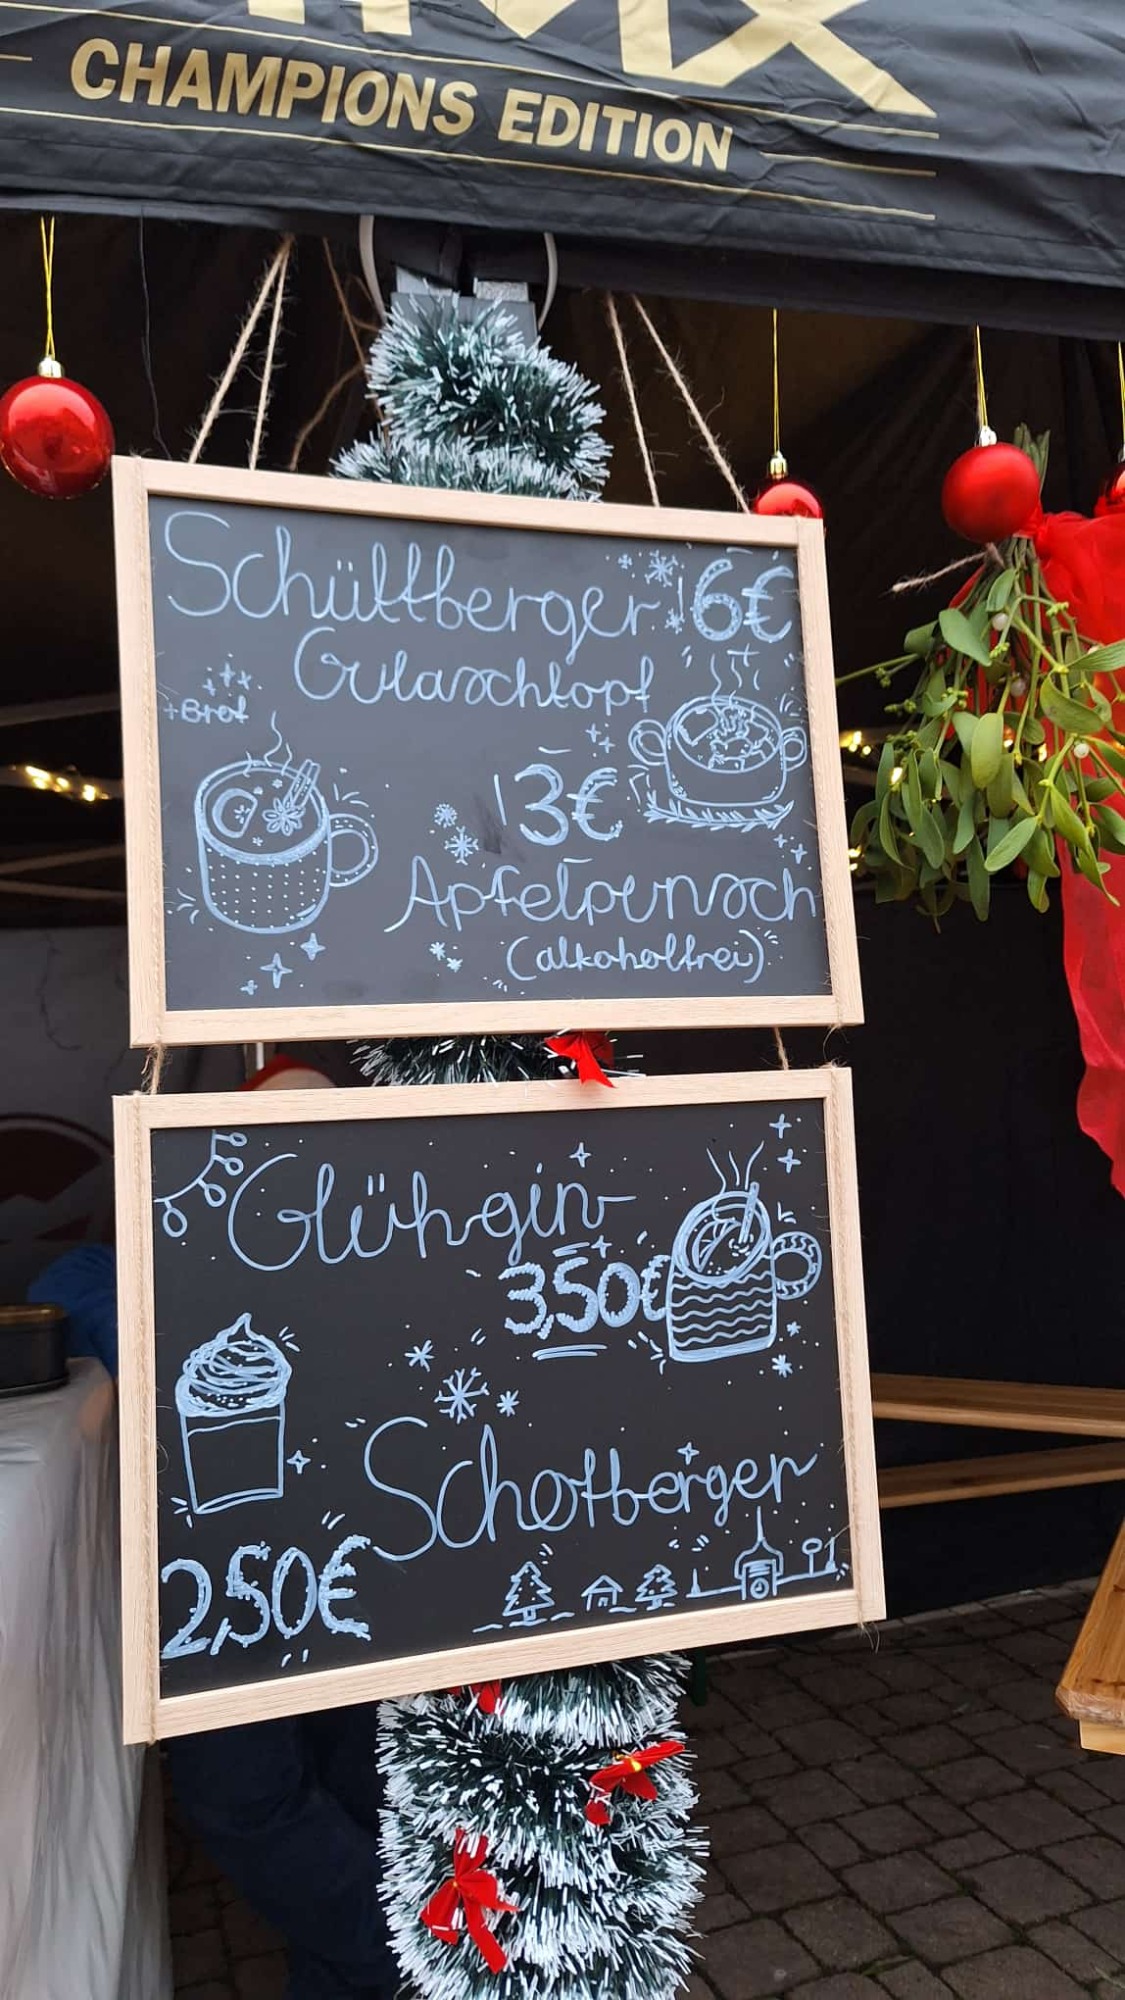 CHAMPIONS EDITION
Schüttberger 6€
Gulaschtopf
+Brot
3€
Apfelpunsch
(alkoholfrei)
Glühgin
3,50€
Schotberger
2,50€